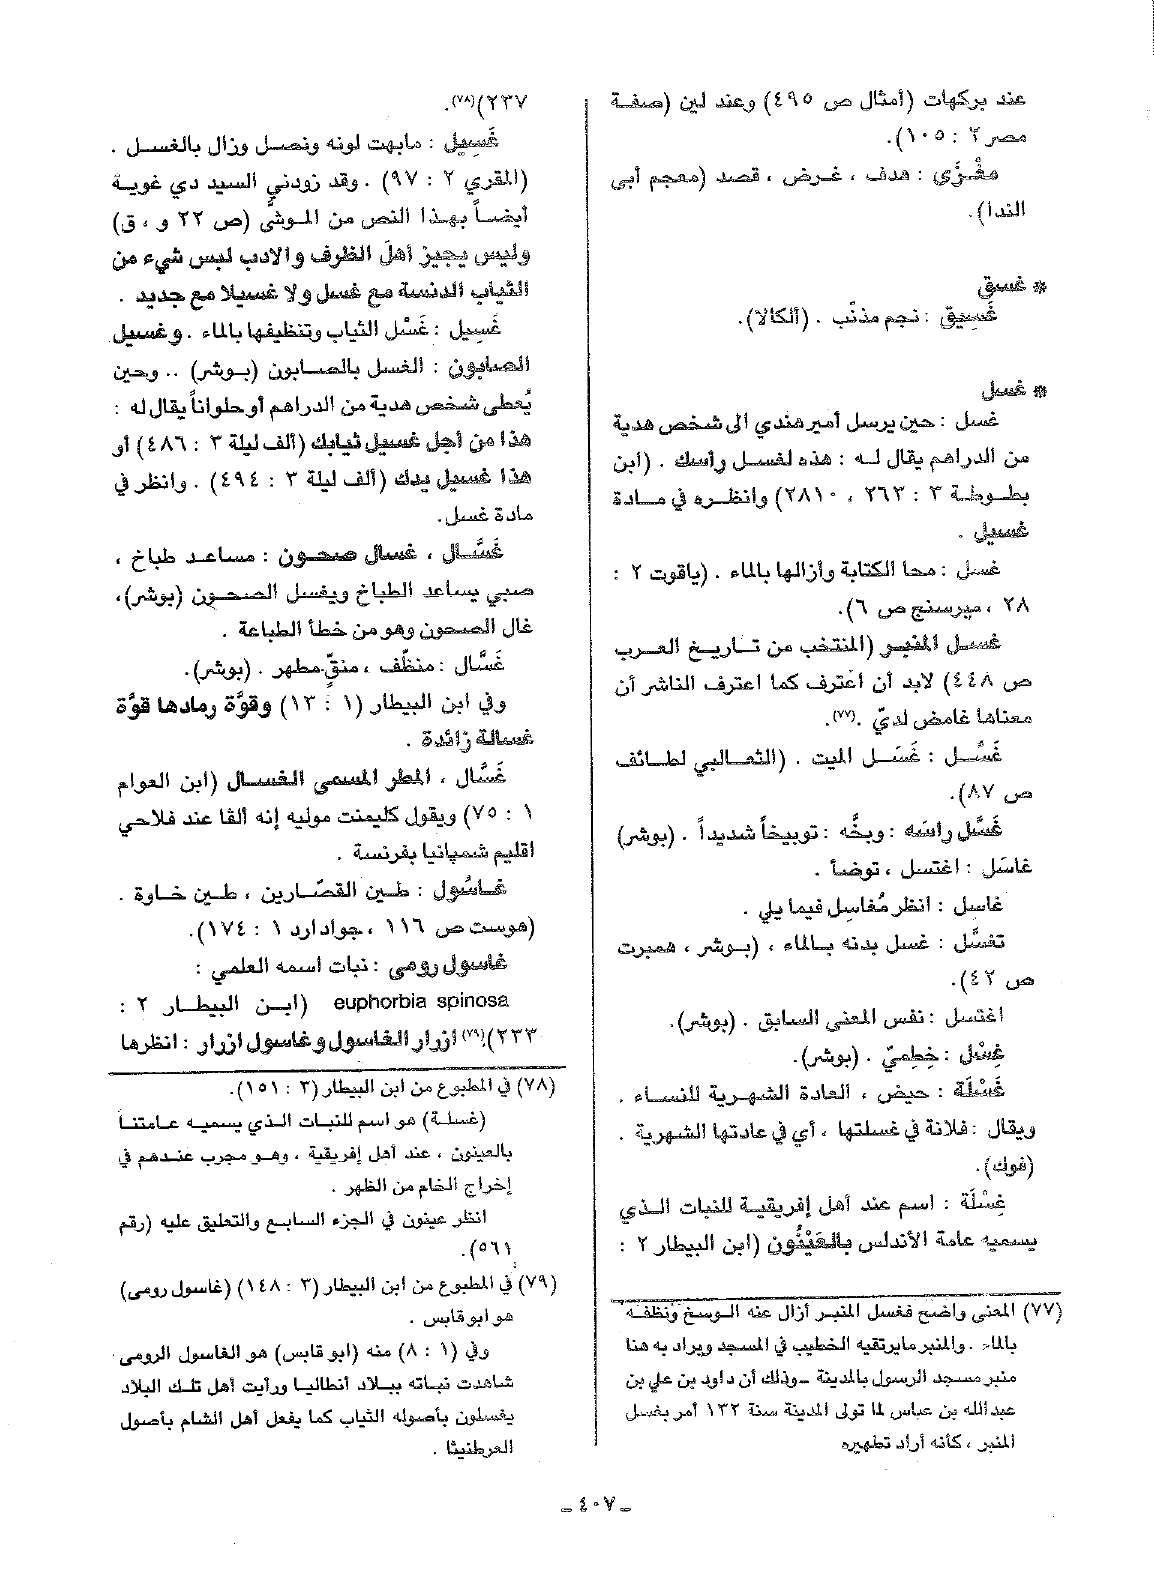 عند بركهات (أمثال ص ٤٩٥) وعند لين (صفة
مصر ٢ : ١٠٥).
مغْزَى : هدف ، غرض ، قصد (معجم أبى
الندا).
* غسق
غَسِيق : نجم مذنّب . (ألكالا).
* غسل
غسل : حين يرسل أمير هندي الى شخص هدية
من الدراهم يقال له : هذه لغسل رأسك . (ابن
بطوطة ٣ : ٢٦٣ ، ٢٨١٠) وانظره في مادة
غسيل .
غسل : محا الكتابة وأزالها بالماء . (ياقوت ٢ :
٢٨ ، ميرسنج ص ٦).
غسل المنبر (المنتخب من تاريخ العرب
ص ٤٤٨) لابد أن أعترف كما اعترف الناشر أن
معناها غامض لديّ .(٧٧).
غَسَّل : غَسَل الميت . (الثعالبي لطائف
ص ٨٧).
غَسَّل راسَه : وبخُّه : توبيخاً شديداً . (بوشر)
غاسَل : اغتسل ، توضأ .
غاسل : انظر مُغاسِل فيما يلي .
تغسَّل : غسل بدنه بالماء ، (بوشر ، همبرت
ص ٤٢).
اغتسل : نفس المعنى السابق . (بوشر).
غِسْل : خِطميّ . (بوشر).
غَسْلَة : حيض ، العادة الشهرية للنساء .
ويقال : فلانة في غسلتها ، أي في عادتها الشهرية .
(فوك).
غِسْلَة : اسم عند أهل إفريقية للنبات الذي
يسميه عامة الأندلس بالعَيْنُون (ابن البيطار ٢ :
(٧٧) المعنى واضح فغسل المنبر أزال عنه الوسخ ونظفه
بالماء . والمنبر مايرتقيه الخطيب في المسجد ويراد به هنا
منبر مسجد الرسول بالمدينة ـ وذلك أن داود بن علي بن
عبد الله بن عباس لما تولى المدينة سنة ١٣٢ أمر بغسل
المنبر ، كأنه أراد تطهيره
٢٣٧)(٧٨).
غَسِيل : مابهت لونه ونصل وزال بالغسل .
(المقري ٢ : ٩٧) . وقد زودني السيد دي غوية
أيضاً بهذا النص من الموشَّى (ص ٢٢ و ، ق)
وليس يجيز أهلَ الظرف والادب لبس شيء من
الثياب الدنسة مع غسل ولا غسيلا مع جديد .
غَسِيل : غَسْل الثياب وتنظيفها بالماء . وغسيل
الصابون : الغسل بالصابون (بوشر) .. وحين
يُعطى شخص هدية من الدراهم أو حلواناً يقال له :
هذا من أجل غسيل ثيابك (ألف ليلة ٣ : ٤٨٦) أو
هذا غسيل يدك (ألف ليلة ٣ : ٤٩٤) . وانظر في
مادة غسل.
غَسَّال ، غسال صحون : مساعد طباخ ،
صبي يساعد الطباخ ويغسل الصحون (بوشر)،
غال الصحون وهو من خطأ الطباعة .
غَسَّال : منظّف ، منقٍّ مطهر . (بوشر).
وفي ابن البيطار (١ : ١٣) وقوَّة رمادها قوَّة
غسالة زائدة .
غَسَّال ، المطر المسمى الغسال (ابن العوام
١ : ٧٥) ويقول كليمنت موليه إنه ألقا عند فلاحي
اقليم شمپانيا بفرنسة .
غاسُول : طين القصّارين ، طين خاوة .
(هوست ص ١١٦ ، جواد ارد ١ : ١٧٤).
غاسول رومى : نبات اسمه العلمي :
euphorbia spinosa (ابن البيطار ٢ :
٢٣٣)(٧٩) ازرار الغاسول وغاسول ازرار : انظرها
(٧٨) في المطبوع من ابن البيطار (٣ : ١٥١).
(غسلة) هو اسم للنبات الذي يسميه عامتنا
بالعينون ، عند أهل إفريقية ، وهو مجرب عندهم في
إخراج الخام من الظهر .
انظر عينون في الجزء السابع والتعليق عليه (رقم
٥٦١).
(٧٩) في المطبوع من ابن البيطار (٣ : ١٤٨) (غاسول رومى)
هو ابو قابس .
وفي (١ : ٨) منه (ابو قابس) هو الغاسول الرومى .
شاهدت نباته ببلاد أنطاليا ورأيت أهل تلك البلاد
يغسلون بأصوله الثياب كما يفعل أهل الشام بأصول
العرطنيثا .
ـ ٤٠٧ ـ